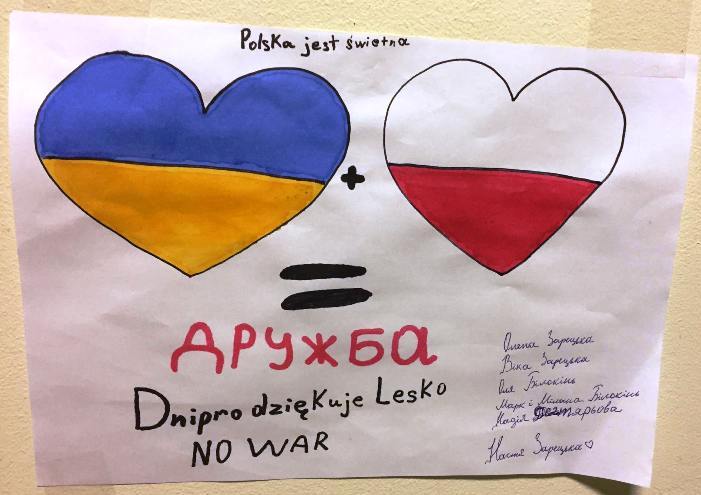 Polska jest świetna
+
=
ДРУЖБА
Dnipro dziękuje Lesko
NO WAR
Олена Зарецька
Віка Зарецька
Оля Білокінь
Марк і Мілана Білокінь
Надія
Настя Зарецька♡